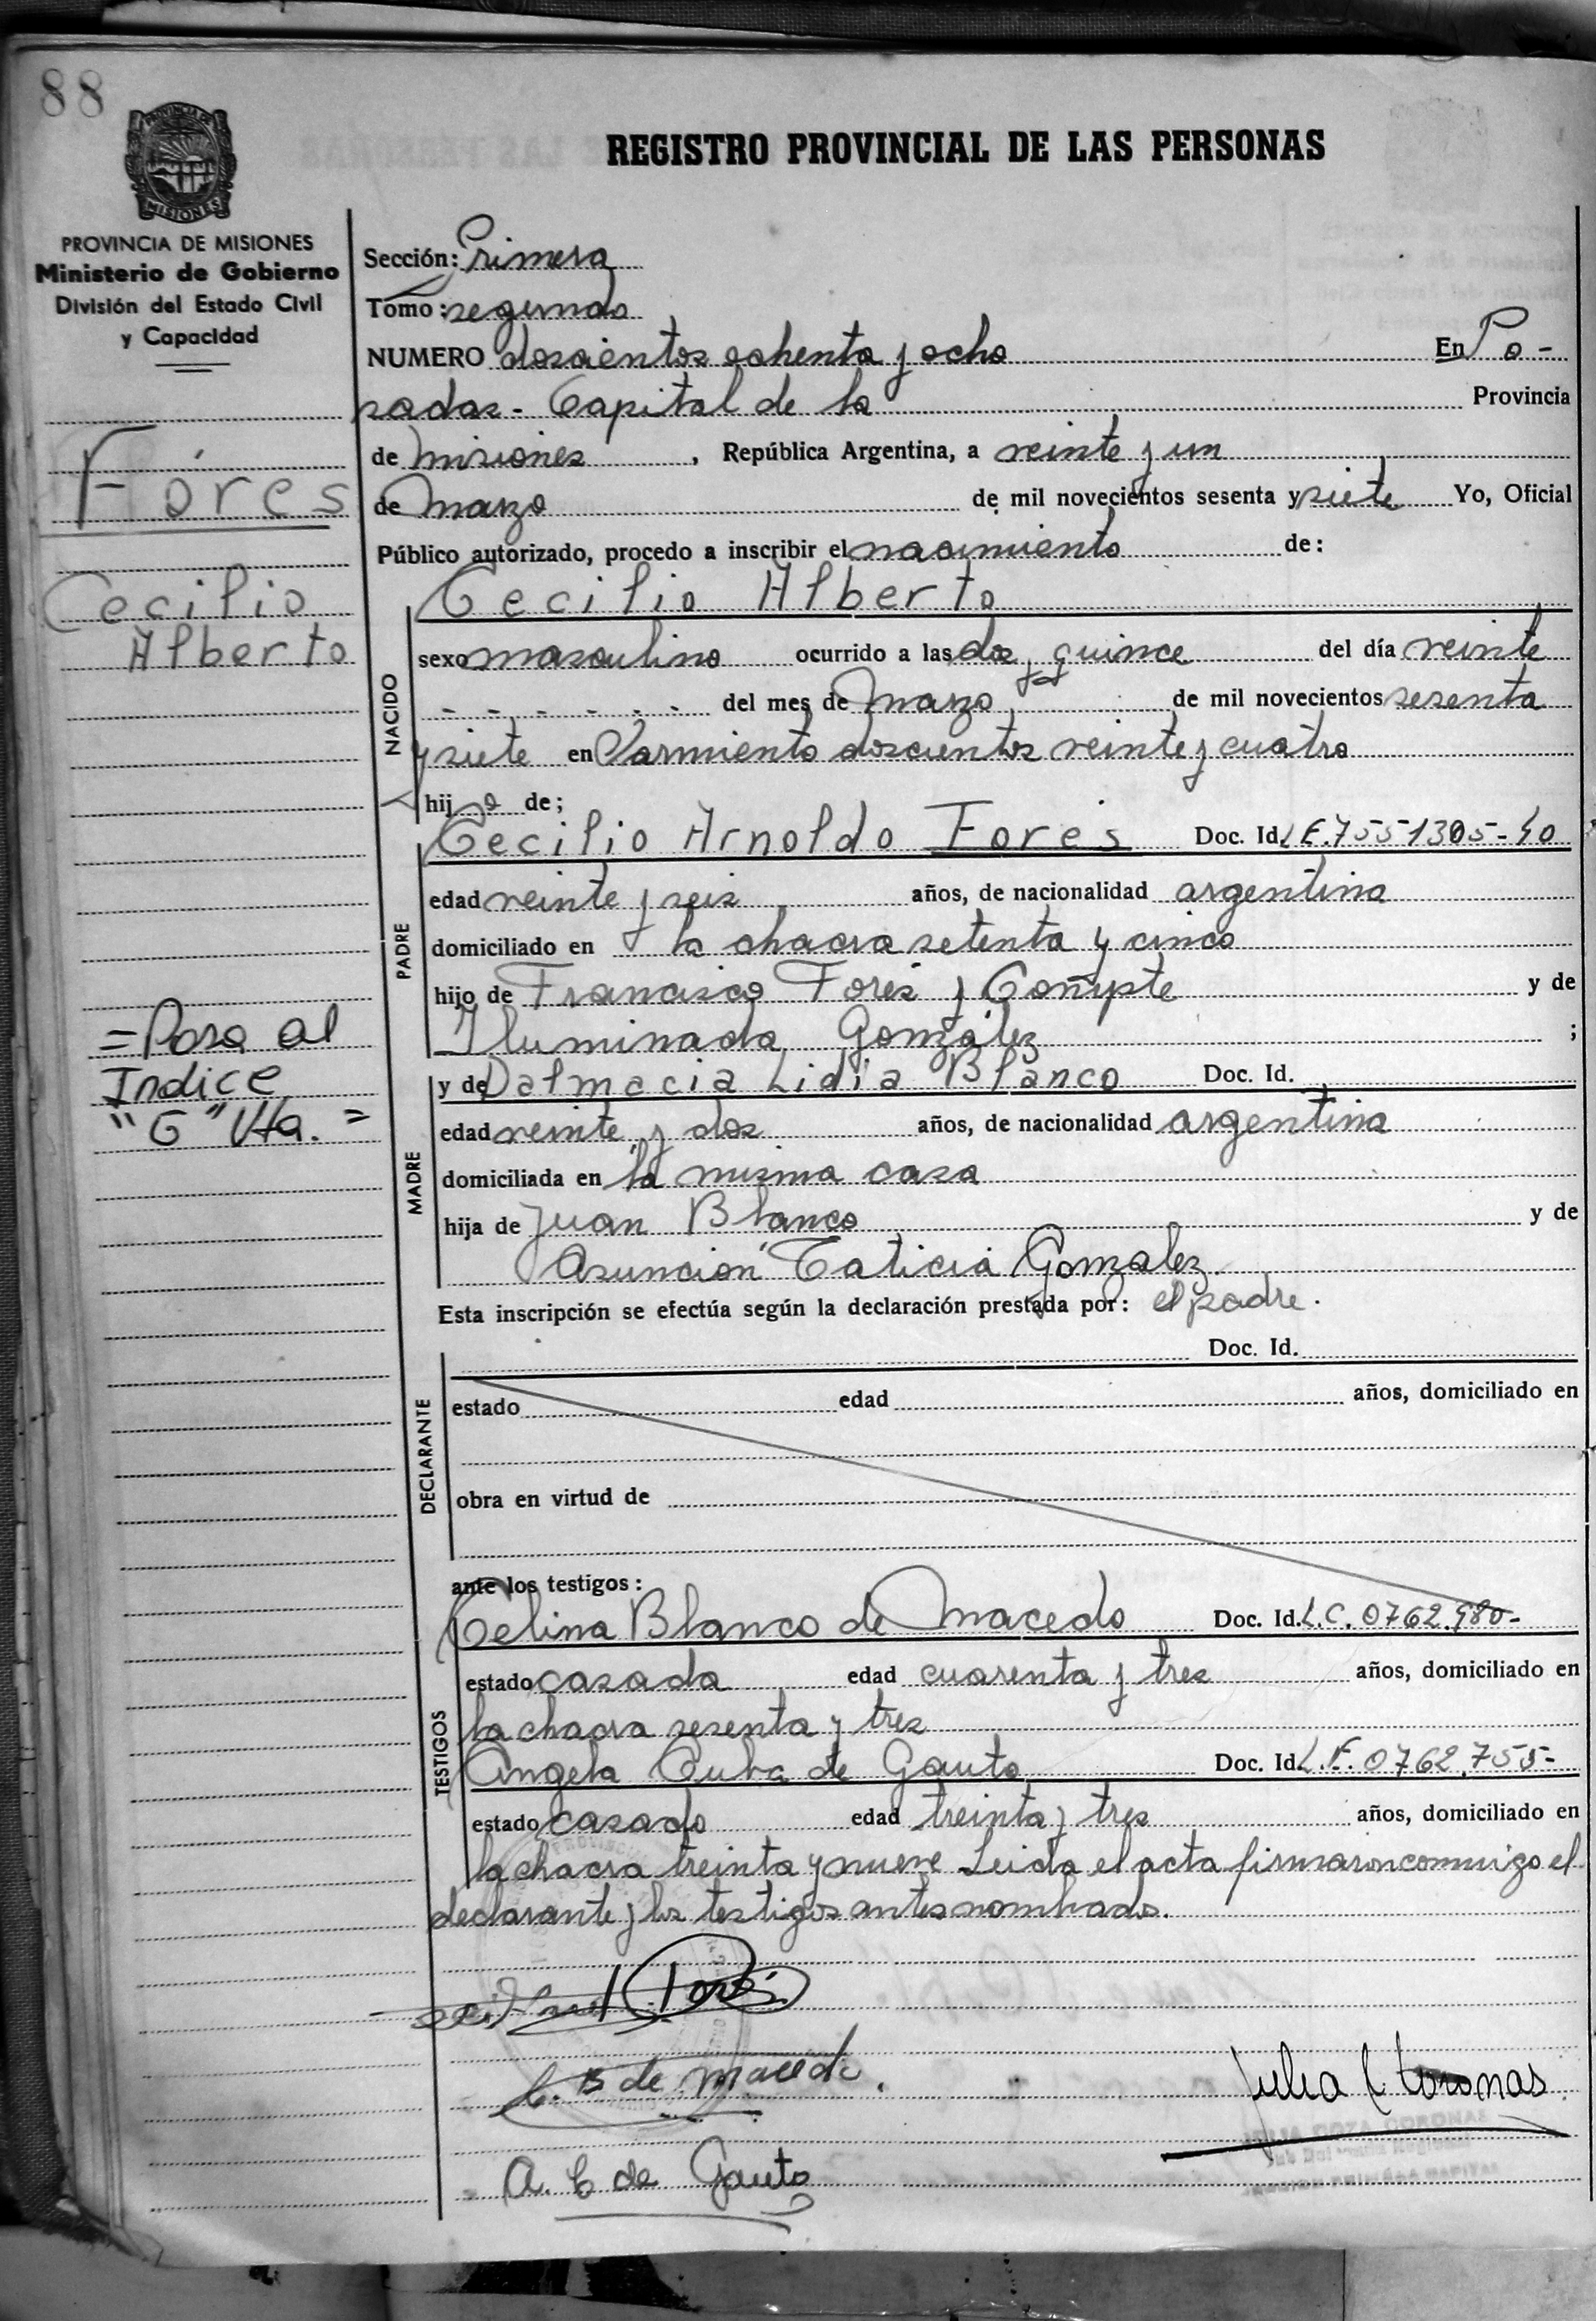 88
PROVINCIA DE
MISIONES
REGISTRO PROVINCIAL DE LAS PERSONAS
PROVINCIA DE MISIONES
Ministerio de Gobierno
División del Estado Civil
y Capacidad
Fóres
Cecilio
Alberto
= Pasa al
Indice
"G" Vta. =
Sección: Primera
Tomo: segundo
NUMERO doscientos ochenta y ocho En Po-
sadas - Capital de la Provincia
de Misiones, República Argentina, a veinte y un
de Marzo de mil novecientos sesenta y siete Yo, Oficial
Público autorizado, procedo a inscribir el nacimiento de:
Cecilio Alberto
NACIDO
sexo masculino ocurrido a las dos y quince del día veinte
- - - - - - del mes de Marzo de mil novecientos sesenta
y siete en Sarmiento doscientos veinte y cuatro
hijo de;
PADRE
Cecilio Arnoldo Fores Doc. Id. L E. 7551305-
edad veinte y seis años, de nacionalidad argentina
domiciliado en la chacra setenta y cinco
hijo de Francisco Fores y y de
Iluminada González ;
MADRE
y de Dalmacia Lidia Blanco Doc. Id.
edad veinte y dos años, de nacionalidad argentina
domiciliada en la misma casa
hija de Juan Blanco y de
Asunción González
Esta inscripción se efectúa según la declaración prestada por: el padre.
DECLARANTE
Doc. Id.
estado edad años, domiciliado en
obra en virtud de
ante los testigos:
TESTIGOS
Celina Blanco de Macedo Doc. Id. L.C. 0762.980-
estado casada edad cuarenta y tres años, domiciliado en
la chacra sesenta y tres
Angela de Gauto Doc. Id. L.E. 0762.755-
estado casado edad treinta y tres años, domiciliado en
la chacra treinta y nueve Leida el acta firmaron conmigo el
declarante y los testigos antes nombrados.
C. B de Macedo.
Julia C Coronas
A. C de Gauto